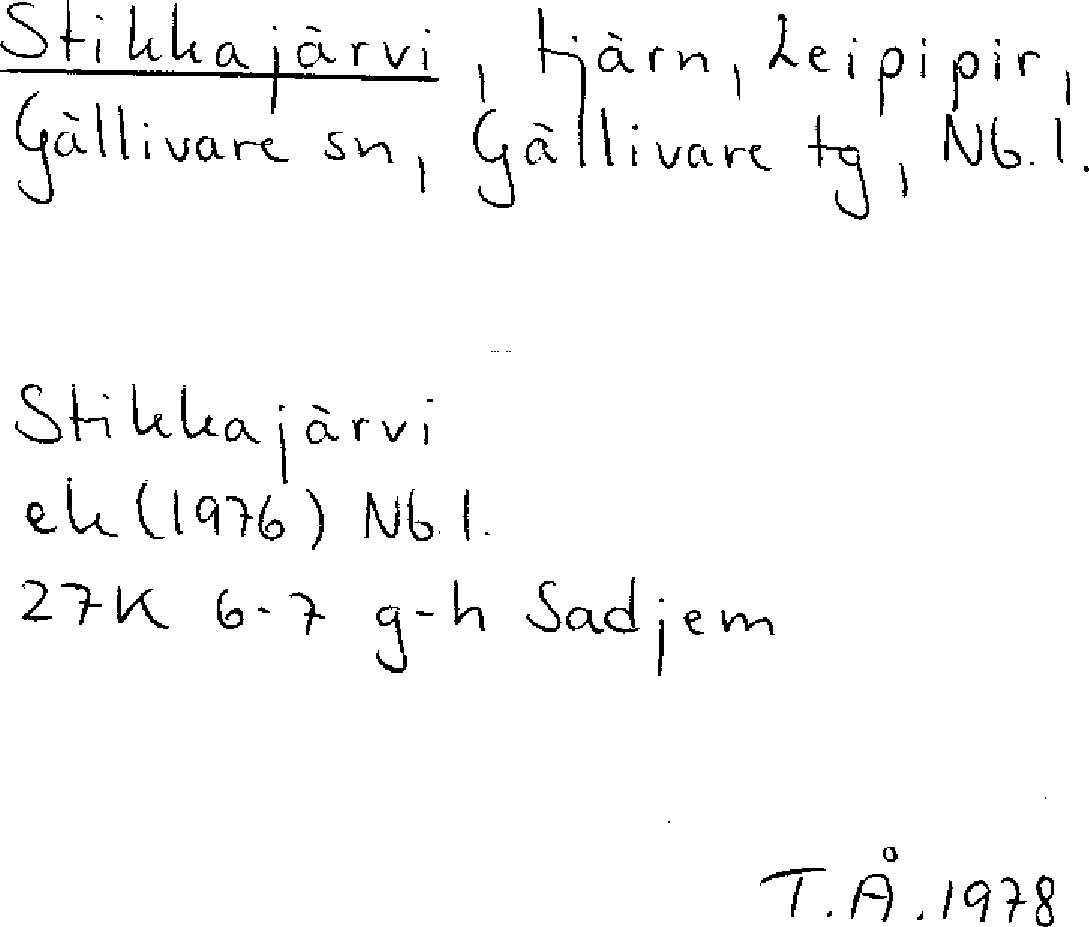 Stikkajärvi, tjärn, Leipipir,
Gällivare sn, Gällivare tg, Nb.l.
Stikkajärvi
ek (1976) Nb.l.
27K 6-7 g-h Sadjem
T.Å.1978